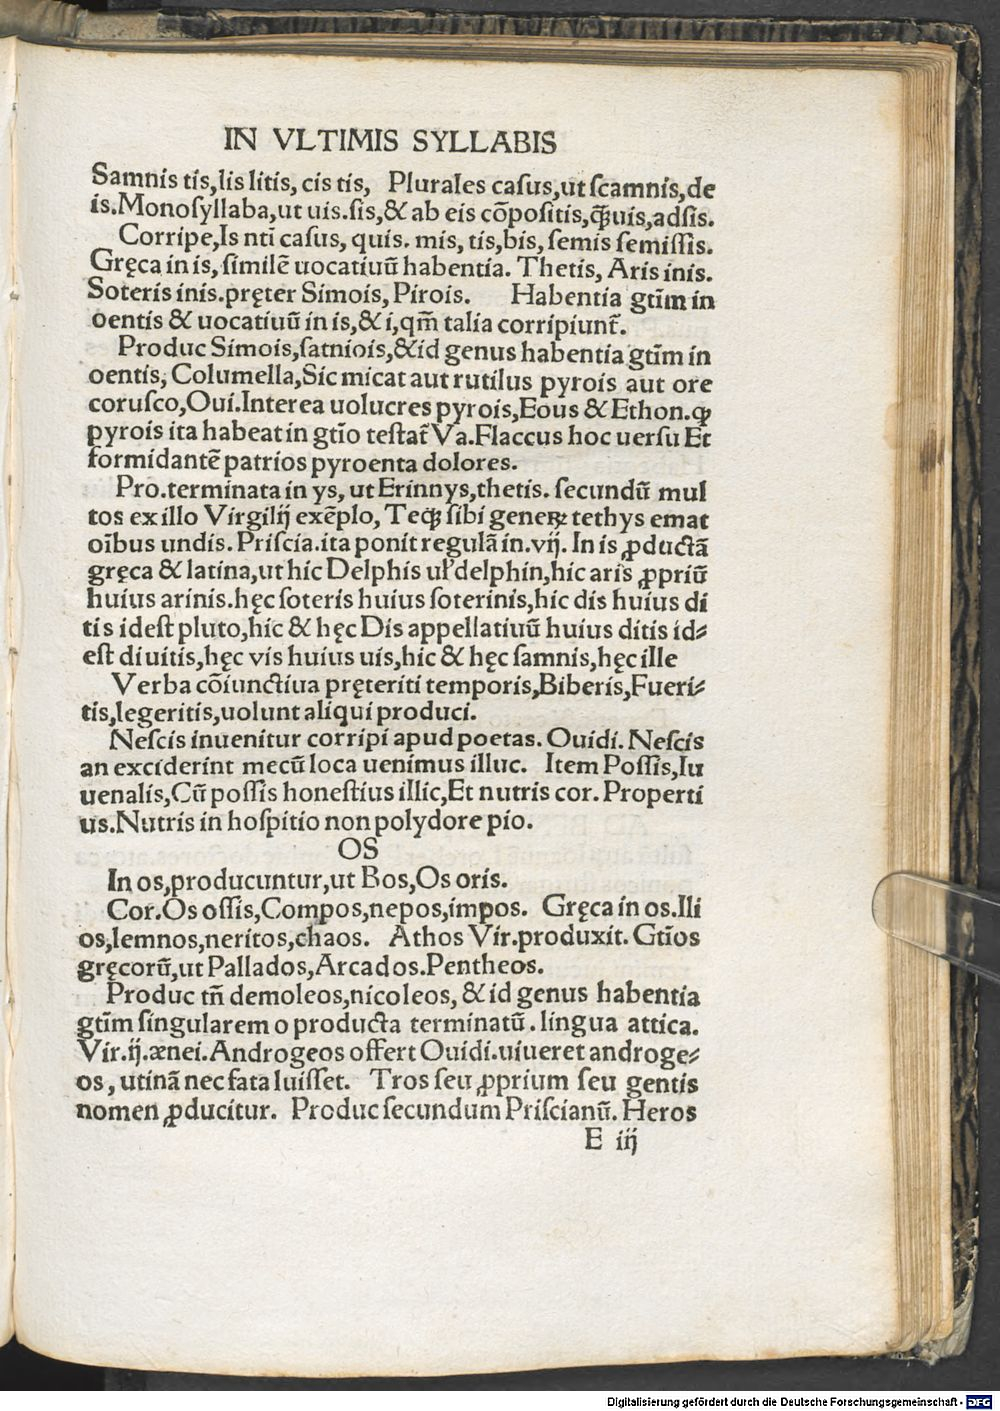 IN VLTIMIS SYLLABIS
Samnis tis,lis litis, cis tis, Plurales casus,ut scamnis,de
is.Monosyllaba,ut uis.sis,& ab eis cōpositis,ꝙ̄uis,adsis.
Corripe,Is nti casus, quis. mis, tis,bis, semis semissis.
Gręca in is, similē uocatiuū habentia. Thetis, Aris inis.
Soteris inis.pręter Simois, Pirois. Habentia gtīm in
oentis & uocatiuū in is,& i,qm̄ talia corripiunt̄.
Produc Simois,satniois,&id genus habentia gtīm in
oentis, Columella,Sic micat aut rutilus pyrois aut ore
corusco,Oui.Interea uolucres pyrois,Eous & Ethon.ꝙ
pyrois ita habeat in gtīo testat̄ Va.Flaccus hoc uersu Et
formidantē patrios pyroenta dolores.
Pro.terminata in ys, ut Erinnys,thetis. secundū mul
tos ex illo Virgilij exēplo, Teqꝫ sibi generꝫ tethys emat
oībus undis. Priscia.ita ponit regulā in.vij. In is ꝓductā
gręca & latina,ut hic Delphis uł delphin,hic aris ꝓpriū
huius arinis.hęc soteris huius soterinis,hic dis huius di
tis idest pluto,hic & hęc Dis appellatiuū huius ditis id⸗
est diuitis,hęc vis huius uis,hic & hęc samnis,hęc ille
Verba cōiunctiua pręteriti temporis,Biberis,Fueri⸗
tis,legeritis,uolunt aliqui produci.
Nescis inuenitur corripi apud poetas. Ouidi. Nescis
an exciderint mecū loca uenimus illuc. Item Possis,Iu
uenalis,Cū possis honestius illic,Et nutris cor. Properti
us.Nutris in hospitio non polydore pio.
OS
In os,producuntur,ut Bos,Os oris.
Cor.Os ossis,Compos,nepos,impos. Gręca in os.Ili
os,lemnos,neritos,chaos. Athos Vir.produxit. Gtīos
gręcorū,ut Pallados,Arcados.Pentheos.
Produc tn̄ demoleos,nicoleos, &id genus habentia
gtīm singularem o producta terminatū . lingua attica.
Vir.ij.ænei.Androgeos offert Ouidi.uiueret androge⸗
os, utinā nec fata luisset. Tros seu ꝓprium seu gentis
nomen ꝓducitur. Produc secundum Priscianū. Heros
E iij
Digitalisierung gefördert durch die Deutsche Forschungsgemeinschaft - DFG